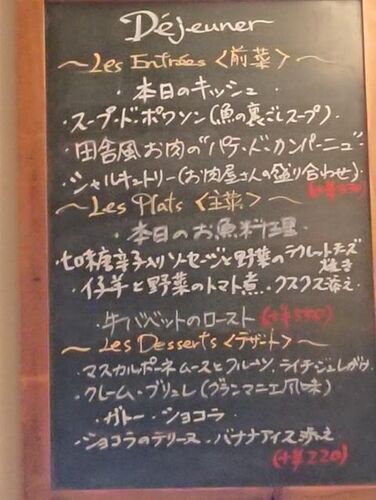 Déjeuner
~Les Entrées <前菜>~
・本日のキッシュ
・スープ・ド・ポワソン(魚の裏ごしスープ)
・田舎風お肉の"パテ・ド・カンパーニュ"
・シャルキュトリー(お肉屋さんの盛り合わせ)
~Les Plats <主菜>~
・本日のお魚料理
・ソーセージと野菜のラクレットチーズ焼き
・仔羊と野菜のトマト煮 クスクス添え
・牛バベットのロースト (+¥550)
~Les Desserts <デザート>~
・マスカルポーネムースとフルーツ、ライチジュレがけ
・クレーム・ブリュレ(ブランマニエ風味)
・ガトー・ショコラ
・ショコラのテリーヌ・バナナアイス添え
(+¥220)